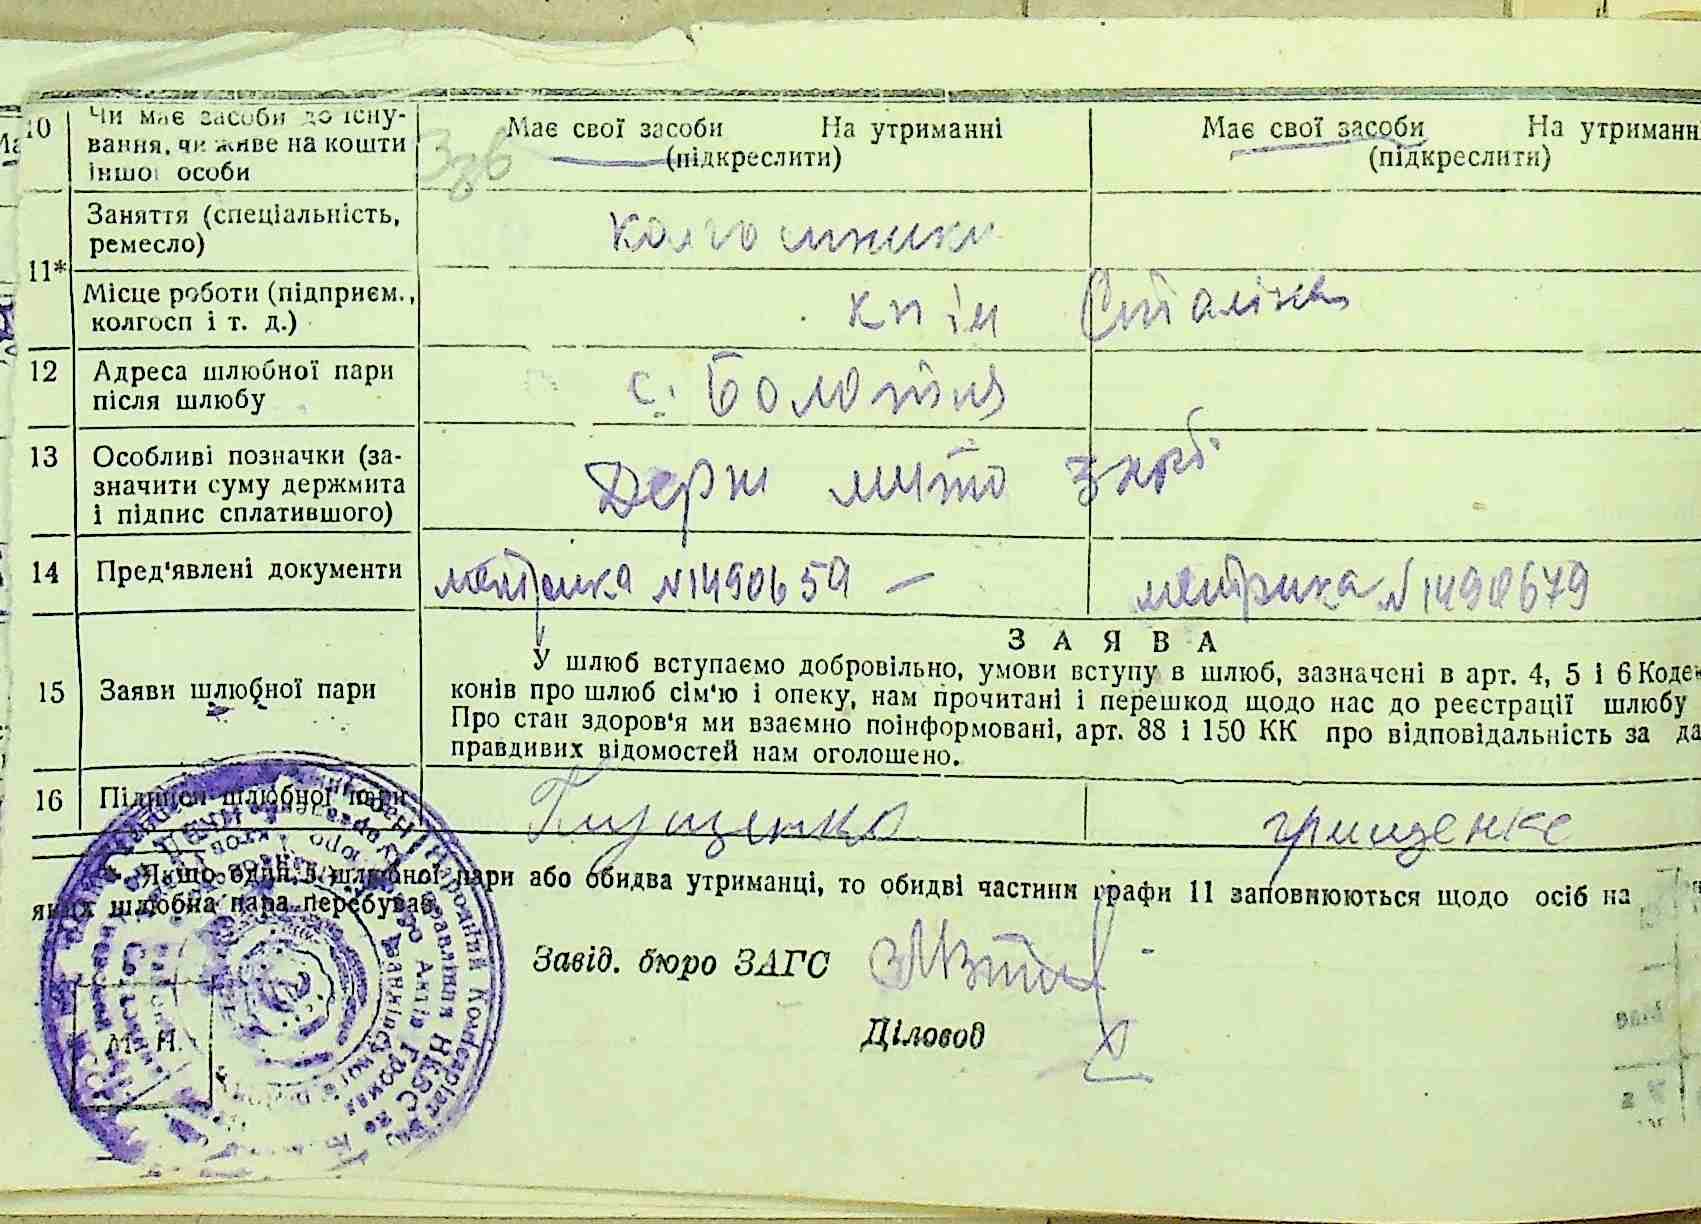 10 Чи має засоби до існу-
вання, чи живе на кошти
іншої особи
Має свої засоби На утриманні
(підкреслити)
Має свої засоби На утриманн
(підкреслити)
11*
Заняття (спеціальність,
ремесло)
колгосники
Місце роботи (підприєм.,
колгосп і т. д.)
ім Сталіна
12 Адреса шлюбної пари
після шлюбу
с. Болотня
13 Особливі позначки (за-
значити суму держмита
і підпис сплатившого)
Держ мито 3 крб
14 Пред'явлені документи
метрика №1490659 —
метрика №1490679
15 Заяви шлюбної пари
ЗАЯВА
У шлюб вступаємо добровільно, умови вступу в шлюб, зазначені в арт. 4, 5 і 6 Коде
конів про шлюб сім'ю і опеку, нам прочитані і перешкод щодо нас до реєстрації шлюбу
Про стан здоров'я ми взаємно поінформовані, арт. 88 і 150 КК про відповідальність за да
правдивих відомостей нам оголошено.
16 Підписи шлюбної пари
Глущенко
грищенке
* Якщо один з шлюбної пари або обидва утриманці, то обидві частини графи 11 заповнюються щодо осіб на
яких шлюбна пара перебуває.
Завід. бюро ЗАГС
Діловод
М. П.
Народний Комісаріат
Управління НКВС
Актів Громад